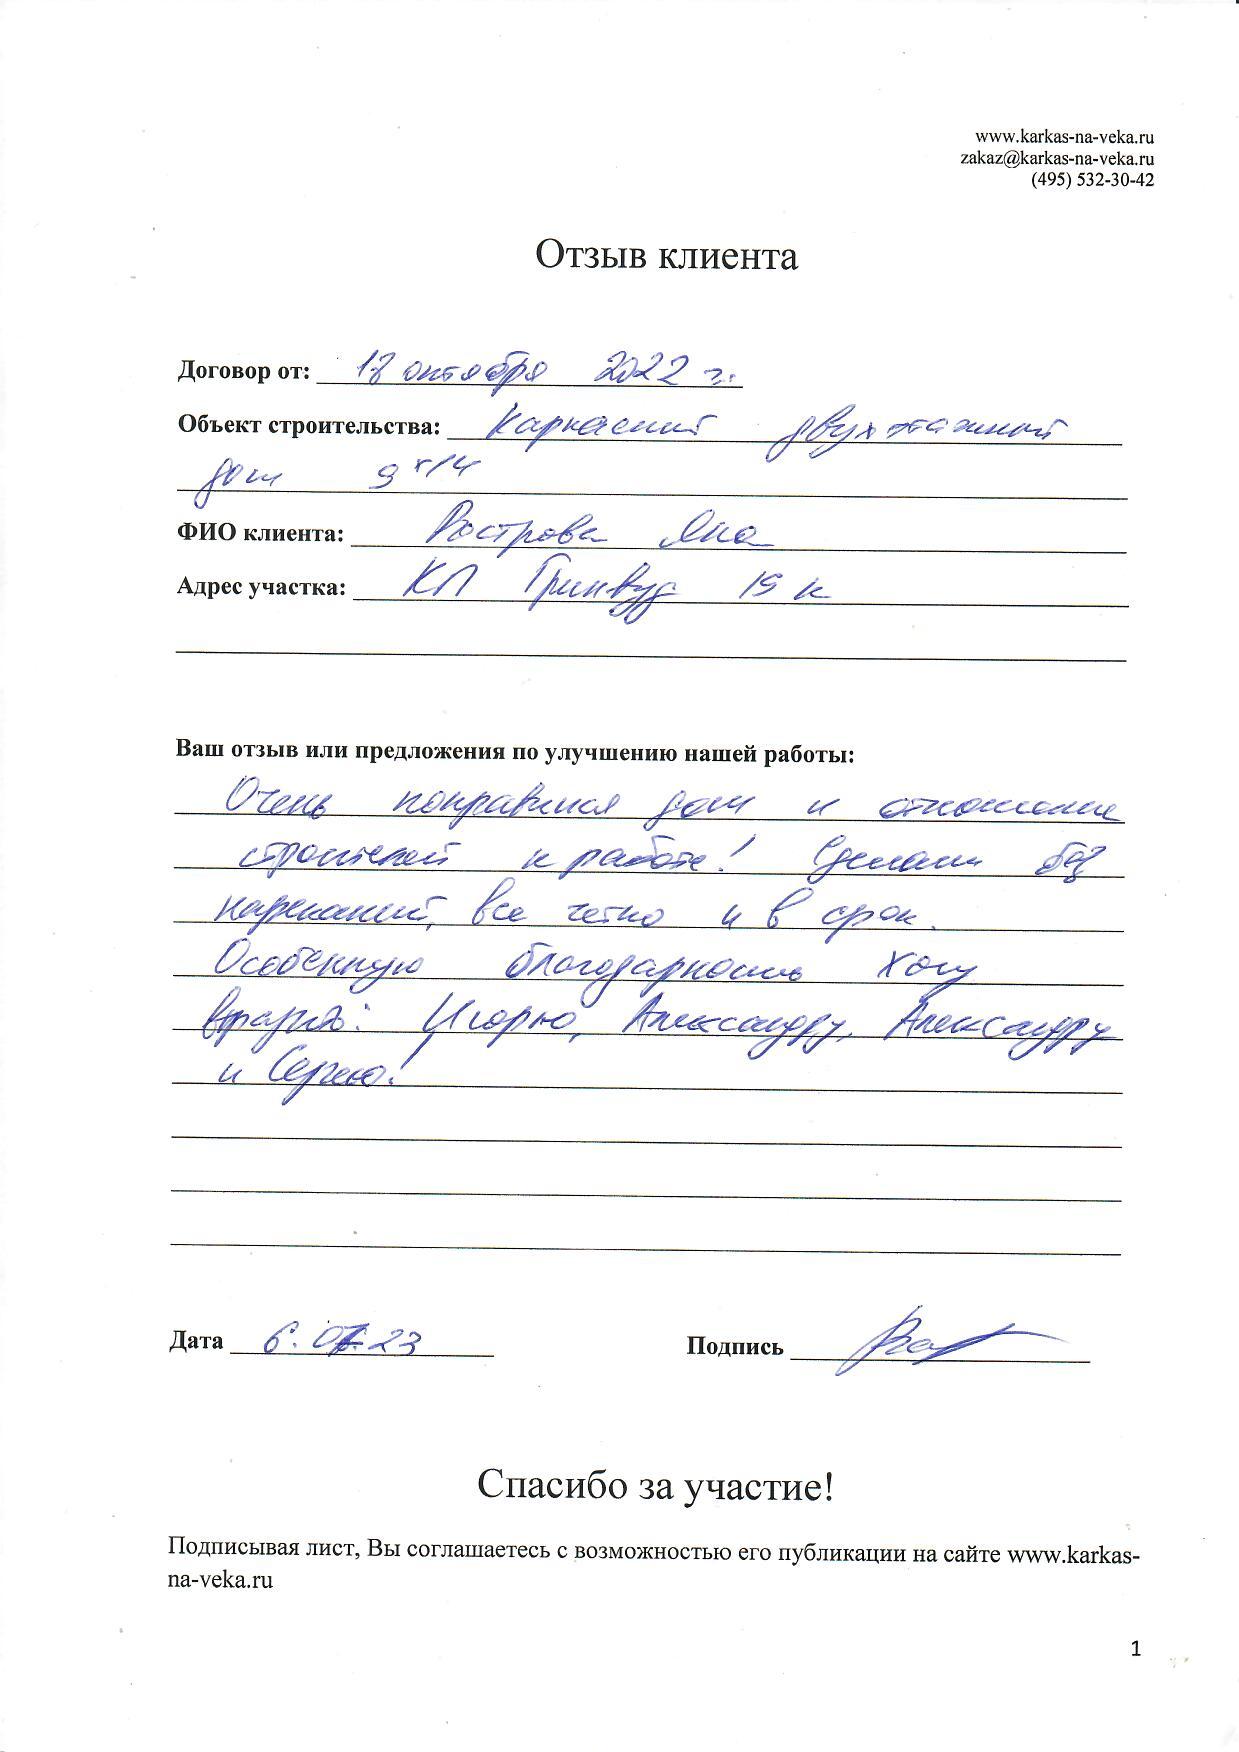 www.karkas-na-veka.ru
zakaz@karkas-na-veka.ru
(495) 532-30-42
Отзыв клиента
Договор от: октября 2022 г.
Объект строительства: Каркасный двухэтажной
дом 9х14
ФИО клиента: Вострова Яна
Адрес участка: КП Гринвуд 19 к
Ваш отзыв или предложения по улучшению нашей работы:
Очень понравился дом и отношение
строителей к работе! Сделали без
нареканий, все четко и в срок.
Особенную благодарность хочу
выразить: Игорю, Александру, Александру
и Сергею!
Дата 6. 23
Подпись
Спасибо за участие!
Подписывая лист, Вы соглашаетесь с возможностью его публикации на сайте www.karkas-
na-veka.ru
1